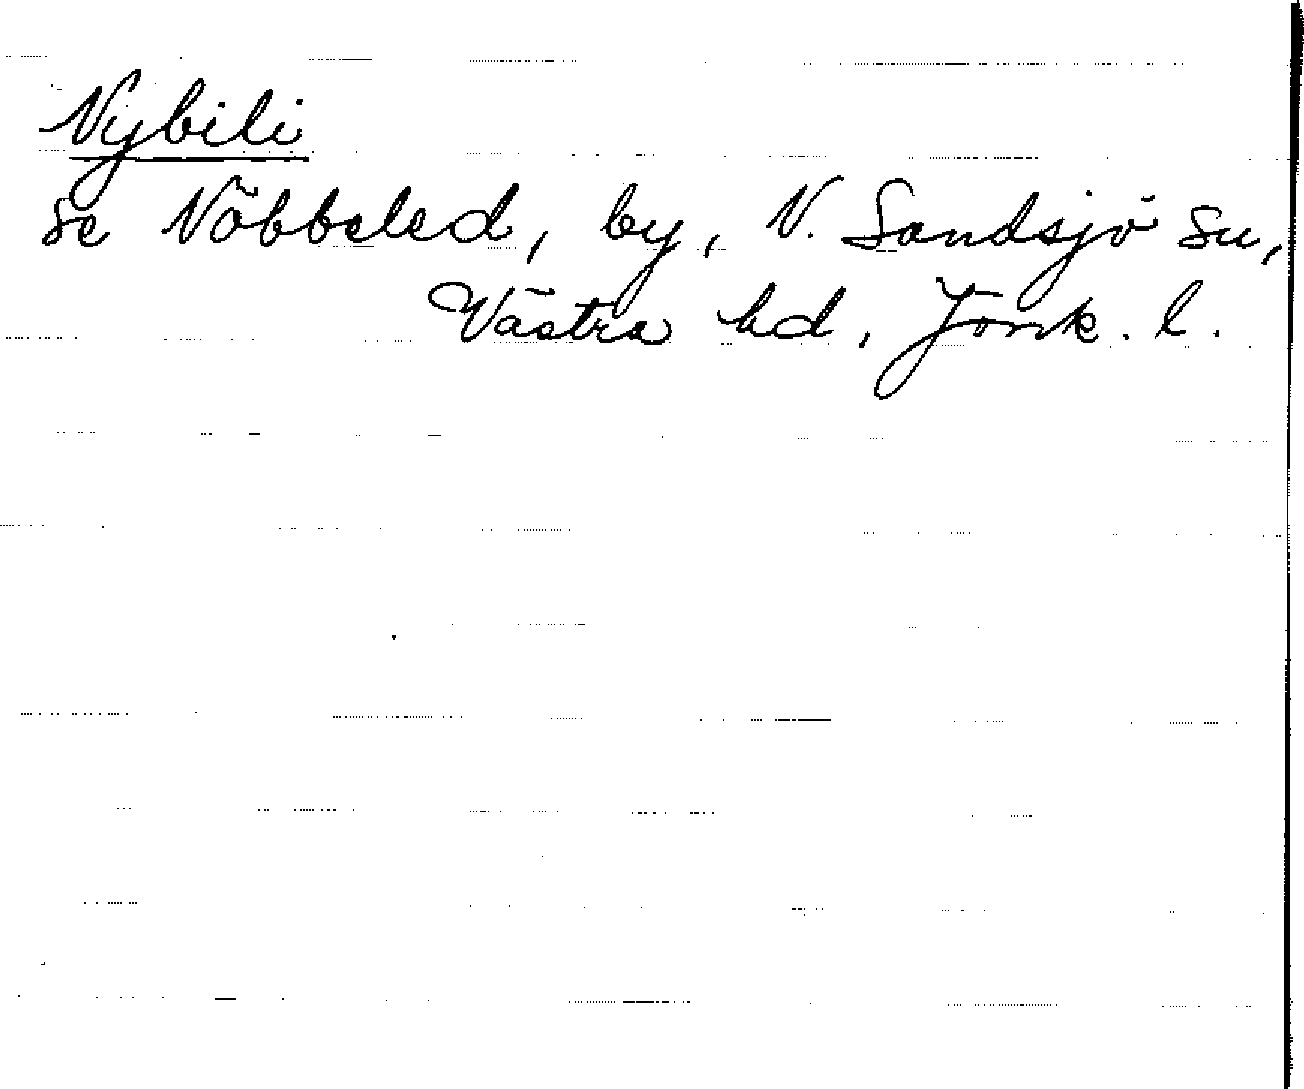 Nybili
se Nöbbeled, by, N. Sandsjö sn,
Västra hd, Jönk. l.